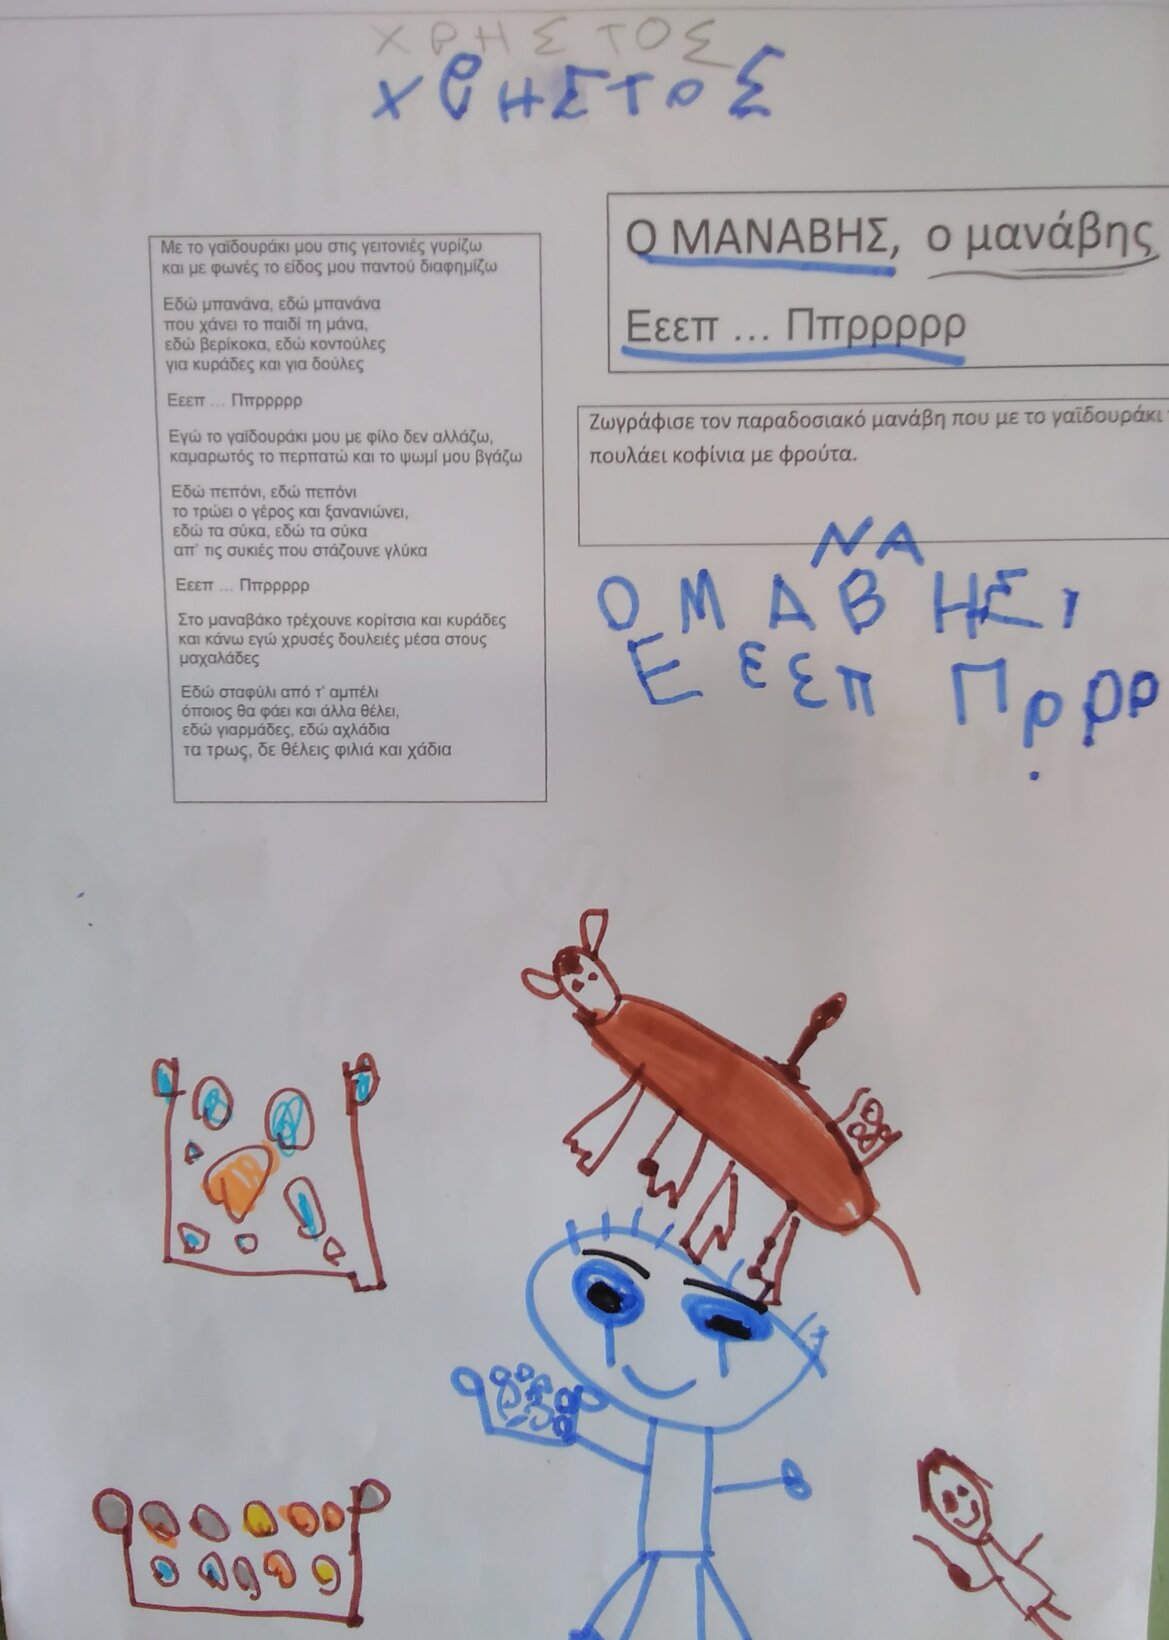 ΧΡΗΣΤΟΣ
ΧΡΗΣΤΟΣ
Με το γαϊδουράκι μου στις γειτονιές γυρίζω
και με φωνές το είδος μου παντού διαφημίζω
Εδώ μπανάνα, εδώ μπανάνα
που χάνει το παιδί τη μάνα,
εδώ βερίκοκα, εδώ κοντούλες
για κυράδες και για δούλες
Εεεπ ... Ππρρρρρ
Εγώ το γαϊδουράκι μου με φίλο δεν αλλάζω,
καμαρωτός το περπατώ και το ψωμί μου βγάζω
Εδώ πεπόνι, εδώ πεπόνι
το τρώει ο γέρος και ξανανιώνει,
εδώ τα σύκα, εδώ τα σύκα
απ' τις συκιές που στάζουνε γλύκα
Εεεπ ... Ππρρρρρ
Στο μαναβάκο τρέχουνε κορίτσια και κυράδες
και κάνω εγώ χρυσές δουλειές μέσα στους
μαχαλάδες
Εδώ σταφύλι από τ' αμπέλι
όποιος θα φάει και άλλα θέλει,
εδώ γιαρμάδες, εδώ αχλάδια
τα τρως, δε θέλεις φιλιά και χάδια
Ο ΜΑΝΑΒΗΣ, ο μανάβης
Εεεπ ... Ππρρρρρ
Ζωγράφισε τον παραδοσιακό μανάβη που με το γαϊδουράκι
πουλάει κοφίνια με φρούτα.
ΝΑ
Ο ΜΑΒΗΣ,
Εεεπ Πρρρ